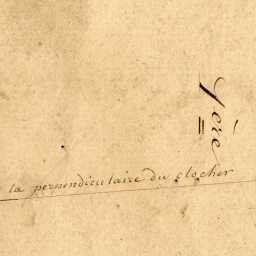 Yere
la perpendiculaire du clocher